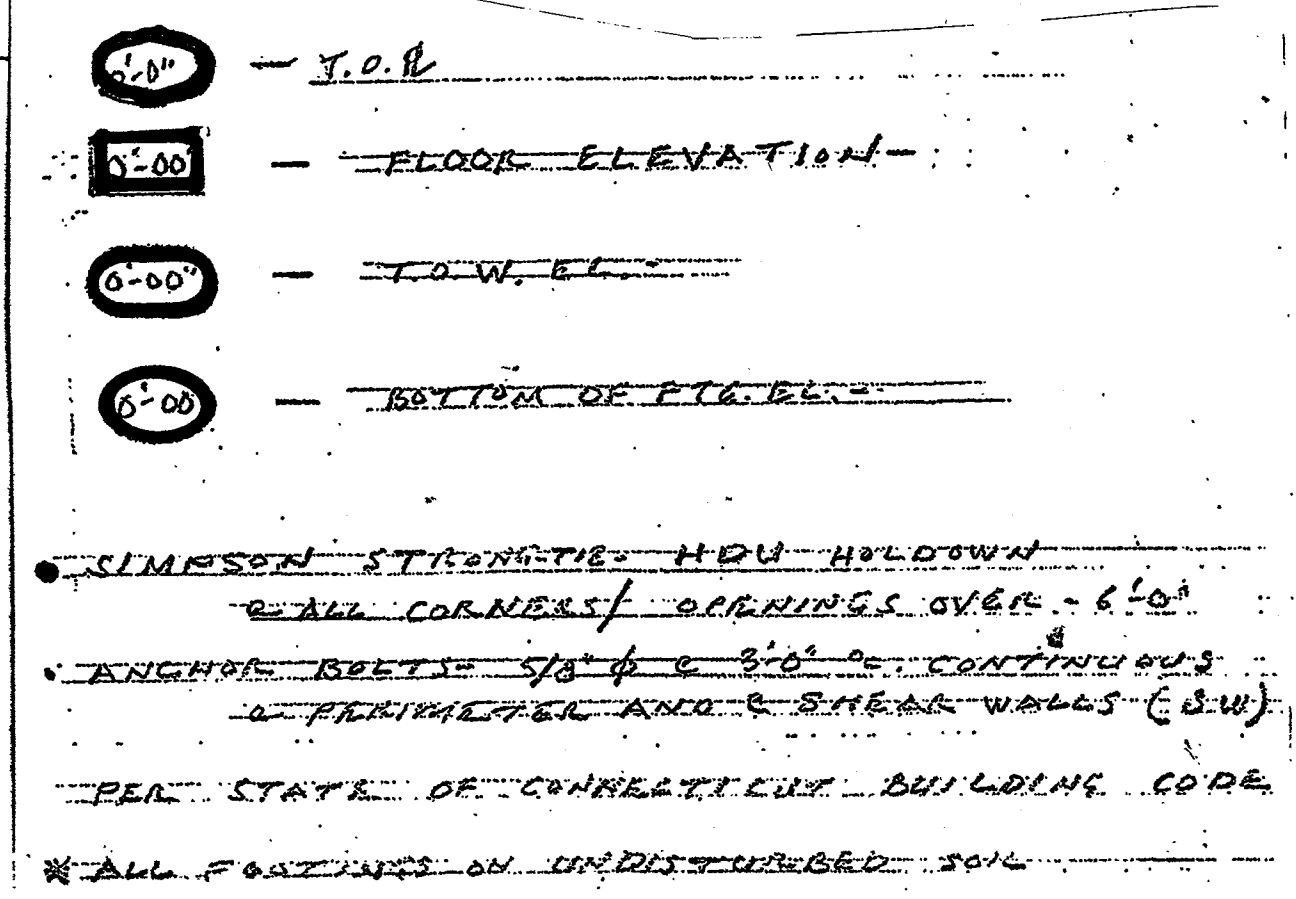 0'-0" — T.O.R
0'-00" — FLOOR ELEVATION-
0'-00" — T.O.W. EL.-
0'-00 — BOTTOM OF FTG. EL.-
• SIMPSON STRONG-TIE- HDU HOLDOWN
@ ALL CORNERS/ OPENINGS OVER - 6'-0"
• ANCHOR BOLTS- 5/8" ϕ @ 3'-0" o.c. CONTINUOUS
@ PERIMETER AND @ SHEAR WALLS (SW)
PER STATE OF CONNECTICUT BUILDING CODE
※ ALL FOOTINGS ON UNDISTURBED SOIL